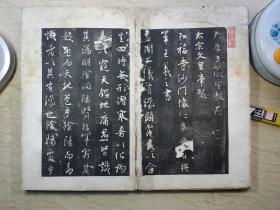 大唐三藏聖教序
太宗文皇帝製
弘福寺沙門懷仁集 右將
軍王羲之書
蓋聞二儀有像顯覆載以含
生四時無形潛寒暑以化物
以窺天鑑地庸愚皆識
其端明陰洞陽賢哲罕窮其
數然而天地苞乎陰陽而易
識者以其有像也陰陽處乎